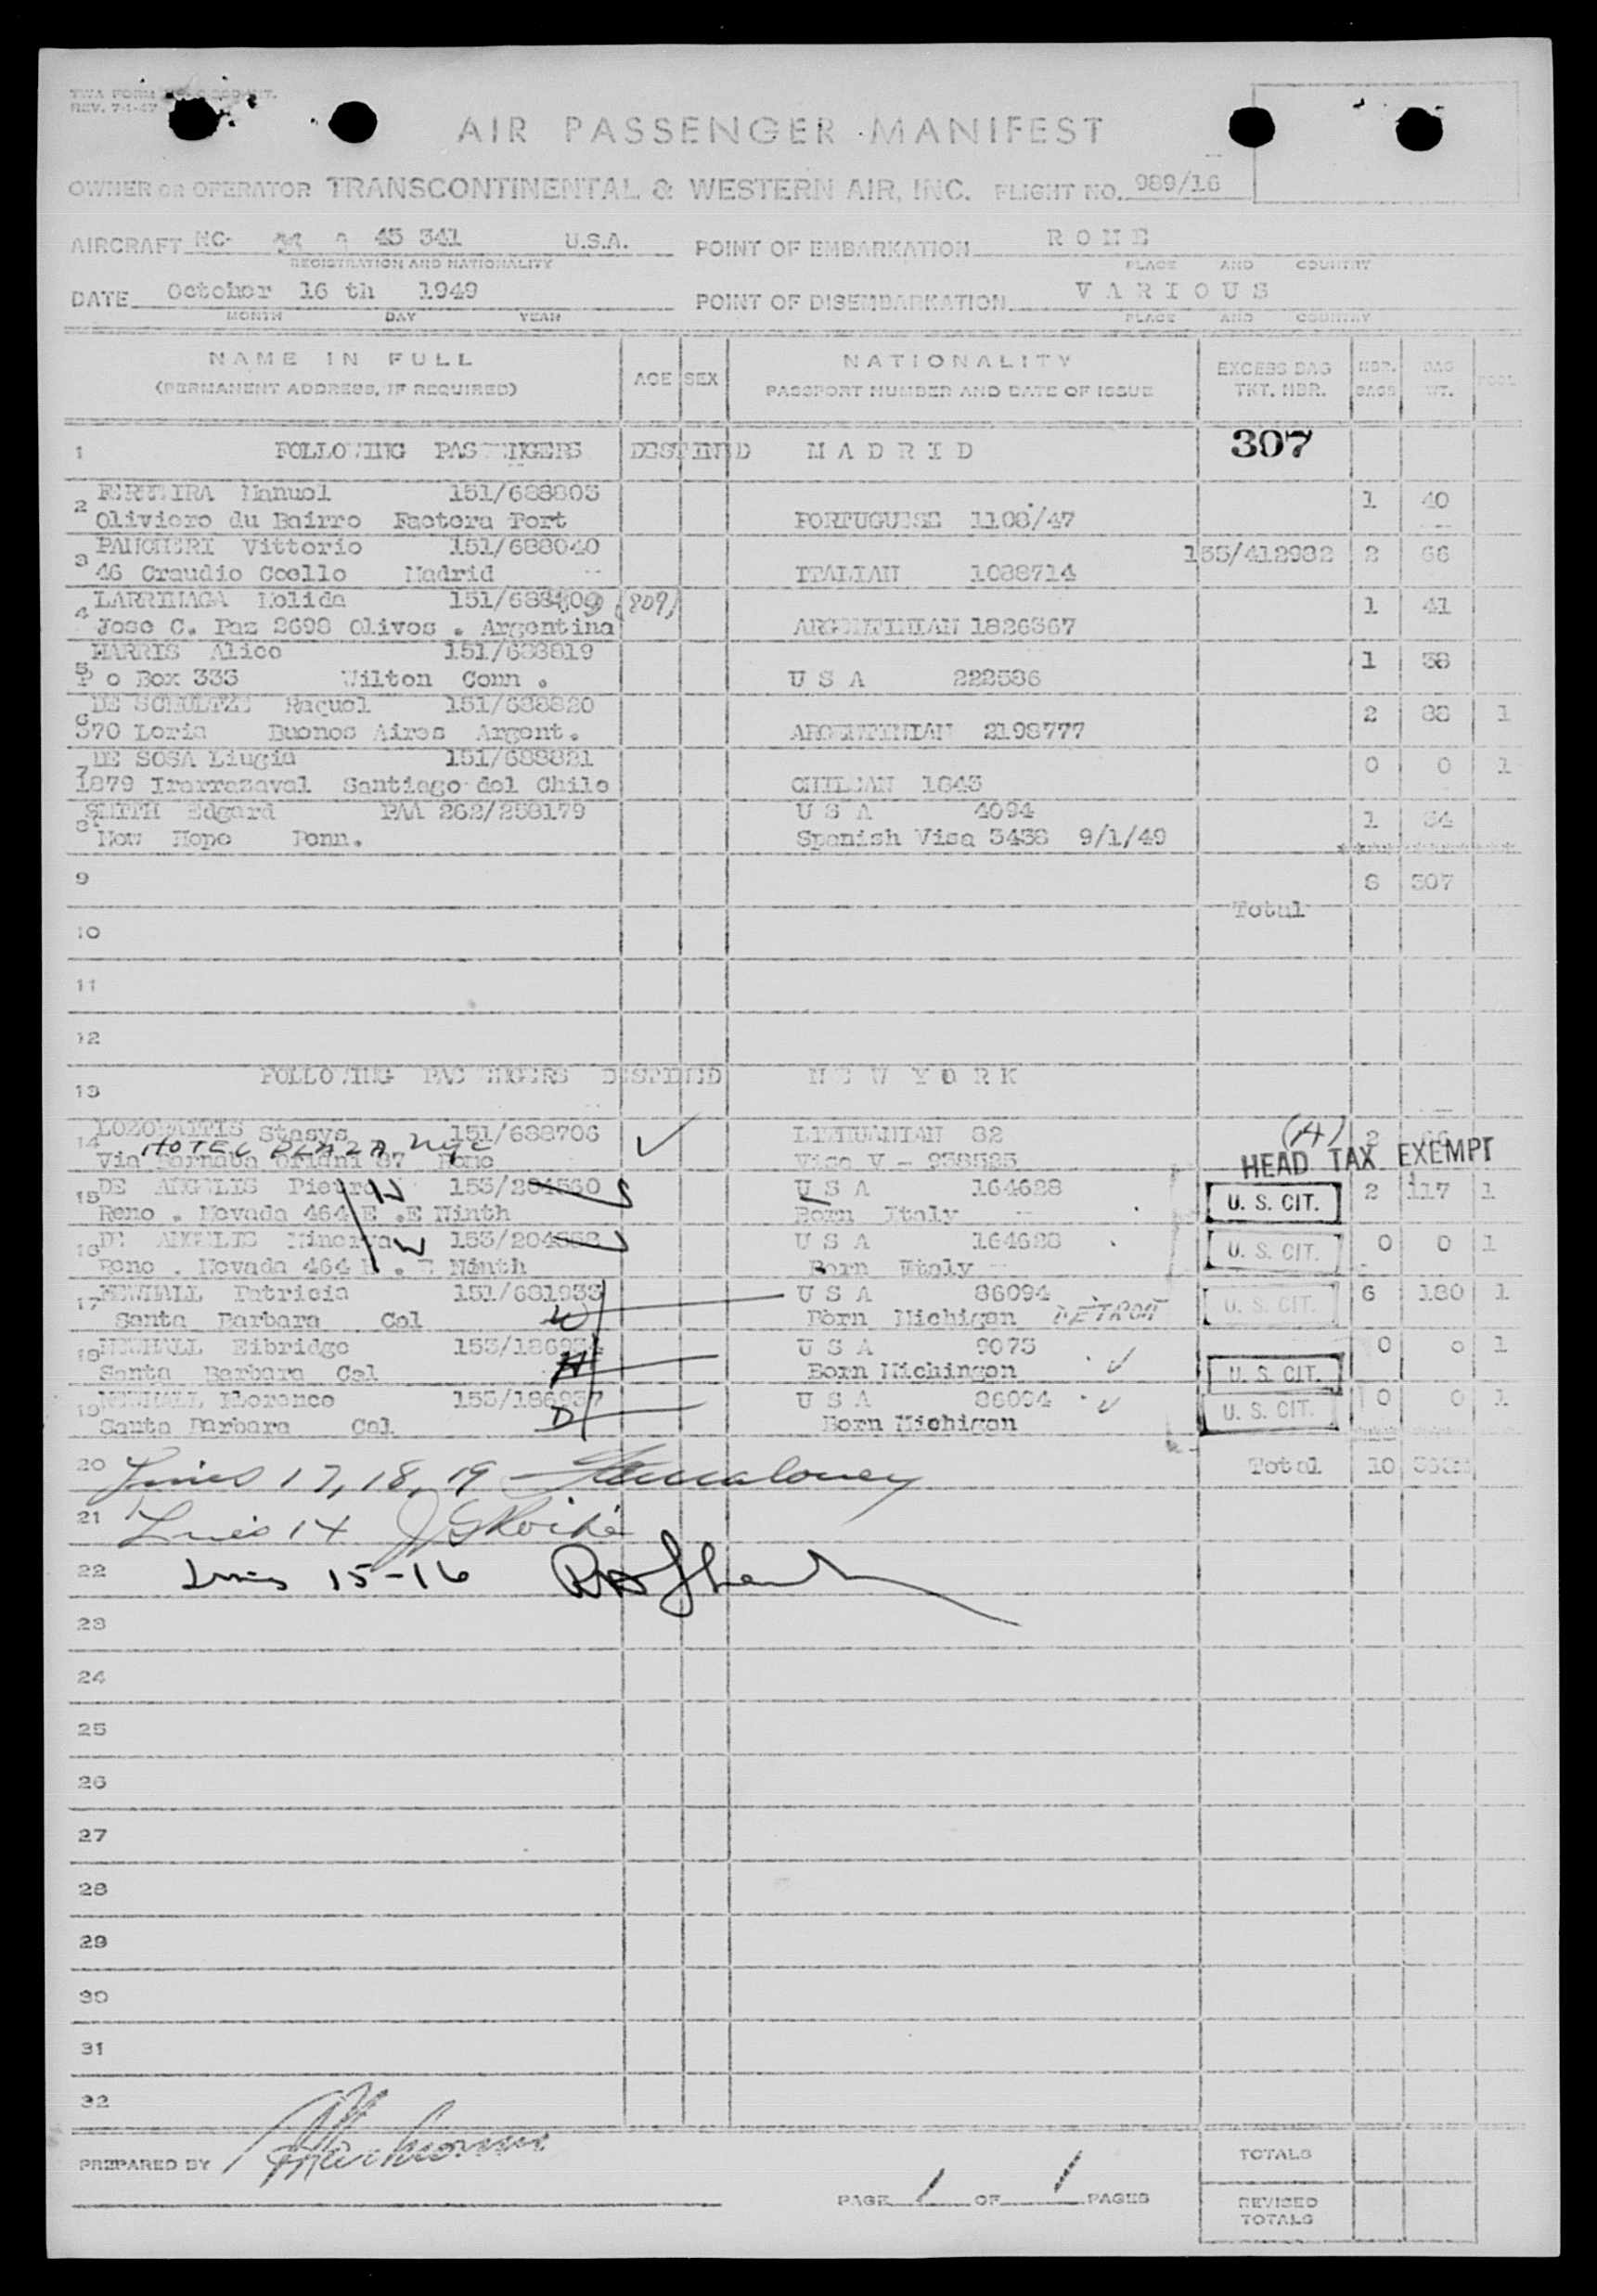 TWA FORM
REV. 7-1-47
AIR PASSENGER MANIFEST
OWNER OR OPERATOR TRANSCONTINENTAL & WESTERN AIR, INC. FLIGHT NO. 989/16
AIRCRAFT NC- 45 341 U.S.A. POINT OF EMBARKATION R O M E
REGISTRATION AND NATIONALITY PLACE AND COUNTRY
DATE October 16 th 1949 POINT OF DISEMBARKATION V A R I O U S
MONTH DAY YEAR PLACE AND COUNTRY
NAME IN FULL AGE SEX NATIONALITY EXCESS BAG NBR. BAG POOL
(PERMANENT ADDRESS, IF REQUIRED) PASSPORT NUMBER AND DATE OF ISSUE TKT. NBR. BAGS WT.
1 FOLLOWING PASSENGERS DESTINED M A D R I D 307
2 FERREIRA Manuel 151/688803 1 40
Oliviero du Bairro Factora Port PORTUGUESE 1108/47
3 PANCHERI Vittorio 151/688040 155/412982 2 66
46 Craudio Coello Madrid ITALIAN 1088714
4 LARRINAGA Lolida (809) 1 41
Jose C. Paz 2698 Olivos . Argentina ARGENTINIAN 1826367
5 HARRIS Alice 151/688819 1 38
P o Box 333 Wilton Conn . U S A 222586
6 DE SCHULTZE Raquel 151/688820 2 88 1
370 Loria Buenos Aires Argent. ARGENTINIAN 2198777
7 DE SOSA Liugia 151/688821 0 0 1
1879 Irarrazaval Santiago del Chile CHILEAN 1843
8 SMITH Edgard PAA 262/258179 U S A 4094 1 34
New Hope Penn. Spanish Visa 3438 9/1/49
9 8 307
Total
10
11
12
13 FOLLOWING PASSENGERS DESTINED N E W Y O R K
14 LOZORAITIS Stasys 151/688706 LITHUANIAN 82 (A) 2
HOTEL PLAZA NYC
Via Barnaba Oriani 87 Rome Visa V - 938523 HEAD TAX EXEMPT
15 DE ANGELIS Pietro W 153/204560 U S A 164628 U. S. CIT. 2 117 1
Reno . Nevada 464 E .E Ninth Born Italy
16 DE ANGELIS Minerva W U S A 164628 U. S. CIT. 0 0 1
Reno . Nevada 464 E . E Ninth Born Italy
17 NEWHALL Patricia 151/681933 U S A 86094 U. S. CIT. 6 180 1
Santa Barbara Cal W Born Michigan DETROIT
18 NEWHALL Elbridge U S A 9073 0 0 1
Santa Barbara Cal H Born Michingan U. S. CIT.
19 NEWHALL Florence 153/186937 U S A 86094 U. S. CIT. 0 0 1
Santa Barbara Cal D Born Michigan
20 Lines 17, 18, 19 Total 10
21 Lines 14
22 Lines 15-16
23
24
25
26
27
28
29
30
31
32
PREPARED BY TOTALS
PAGE 1 OF 1 PAGES REVISED
TOTALS